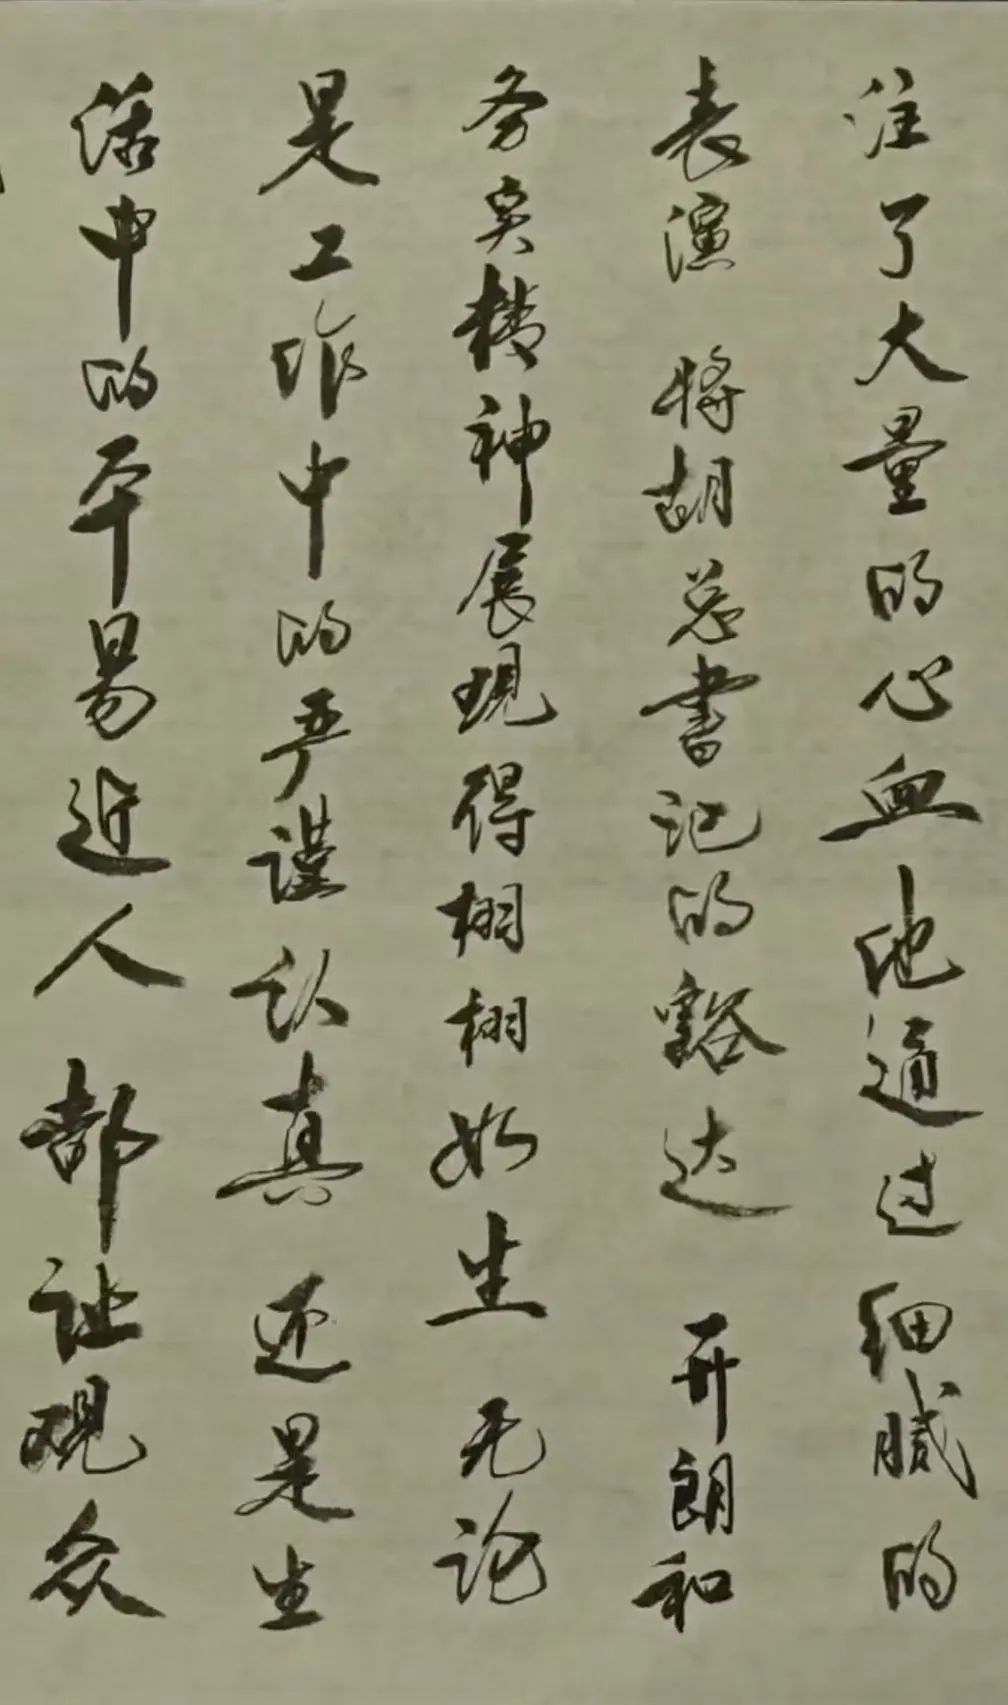 注了大量的心血他通过细腻的
表演将胡总书记的豁达开朗和
务实精神展现得栩栩如生无论
是工作中的严谨认真还是生
活中的平易近人都让观众